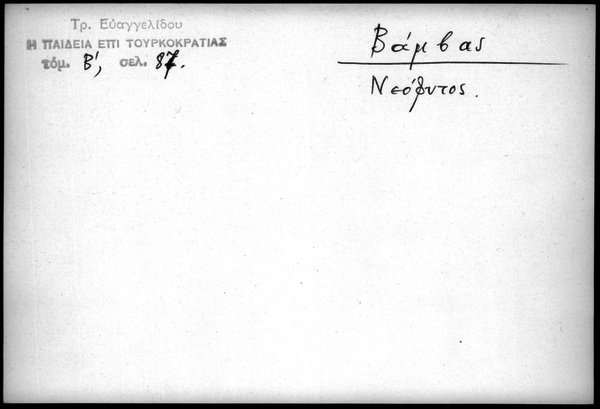 Τρ. Εὐαγγελίδου
Η ΠΑΙΔΕΙΑ ΕΠΙ ΤΟΥΡΚΟΚΡΑΤΙΑΣ
τόμ. Β', σελ. 87.
Βάμβας
Νεόφυτος.